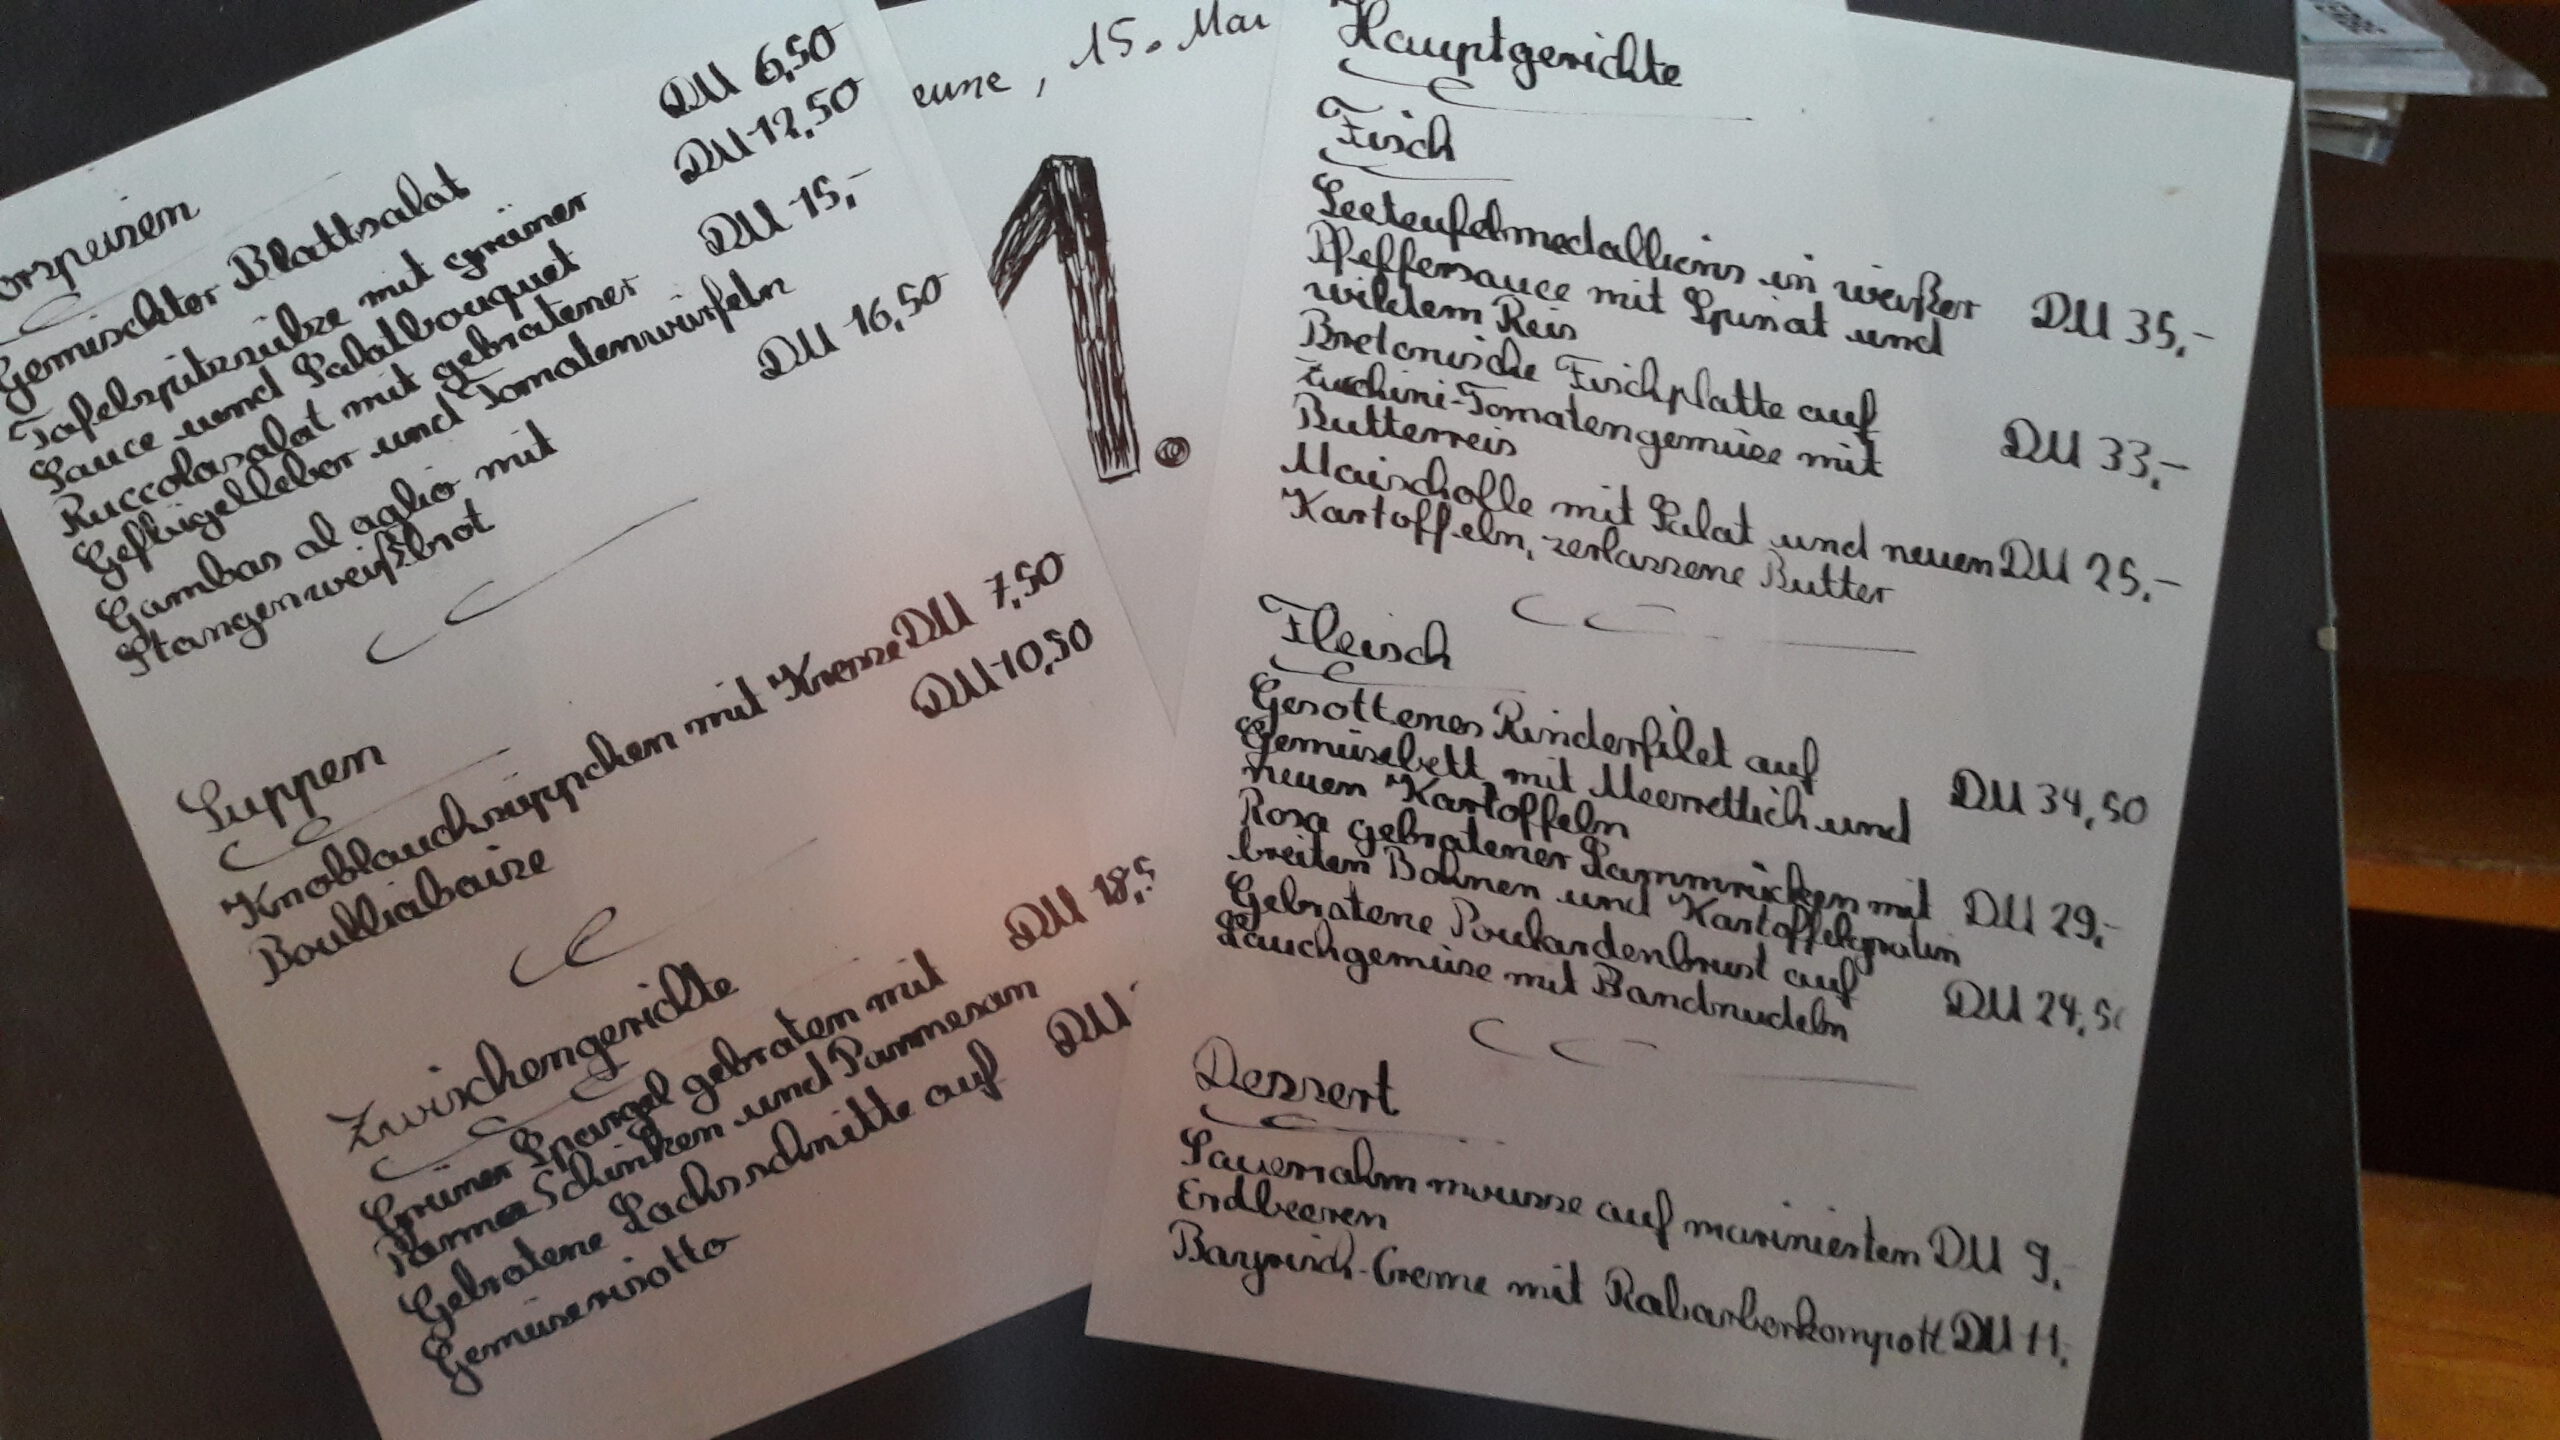 orspeisen
Gemischter Blattsalat DM 6,50
Tafelspitzsülze mit grüner DM 12,50
Sauce und Salatbouquet
Ruccolasalat mit gebratener DM 15,-
Geflügelleber und Tomatenwürfeln
Gambas al aglio mit DM 16,50
Stangenweißbrot
Suppen
Knoblauchsüppchen mit Kresse DM 7,50
Boulliabaise DM 10,50
Zwischengerichte
Grüner Spargel gebraten mit DM 18,5
Parma Schinken und Parmesan
Gebratene Lachsschnitte auf DM
Gemüserisotto
eune, 15. Mai
1.
Hauptgerichte
Fisch
Seeteufelmedallions in weißer DM 35,-
Pfeffersauce mit Spinat und
wildem Reis
Bretonische Fischplatte auf DM 33,-
Zuchini-Tomatengemüse mit
Butterreis
Maischolle mit Salat und neuen DM 25,-
Kartoffeln, zerlassene Butter
Fleisch
Gesottenes Rinderfilet auf DM 34,50
Gemüsebett mit Meerrettich und
neuen Kartoffeln
Rosa gebratener Lammrücken mit DM 29,-
breiten Bohnen und Kartoffelgratin
Gebratene Poulardenbrust auf DM 24,50
Lauchgemüse mit Bandnudeln
Dessert
Sauerrahmmousse auf marinierten DM 9,-
Erdbeeren
Bayrisch-Creme mit Rabarberkompott DM 11,